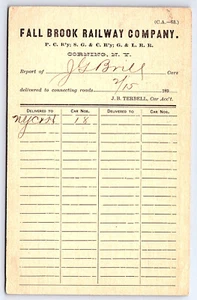 (C.A.—83.)
FALL BROOK RAILWAY COMPANY.
F. C. R'y; S. G. & C. R'y; G. & L. R. R.
CORNING, N. Y.
Report of J G Brill Cars
delivered to connecting roads 2/15 189
J. B. TERBELL, Car Acc't.
DELIVERED TO CAR NOS. DELIVERED TO CAR NOS.
18